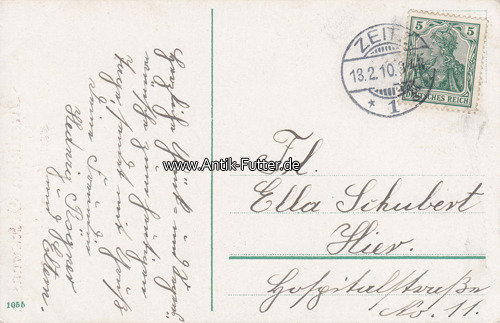 Herzliche Glück- und Segens-
wünsche zum heutigen
Tage, sendet mit Gruß
deine Freundin
Hedwig Bögner
und Eltern.
1055
ZEITZ
13.2.10.
* 1
5 5
DEUTSCHES REICH
www.Antik-Futter.de
Frl.
Ella Schubert
Hier.
Hospitalstraße
No. 11.